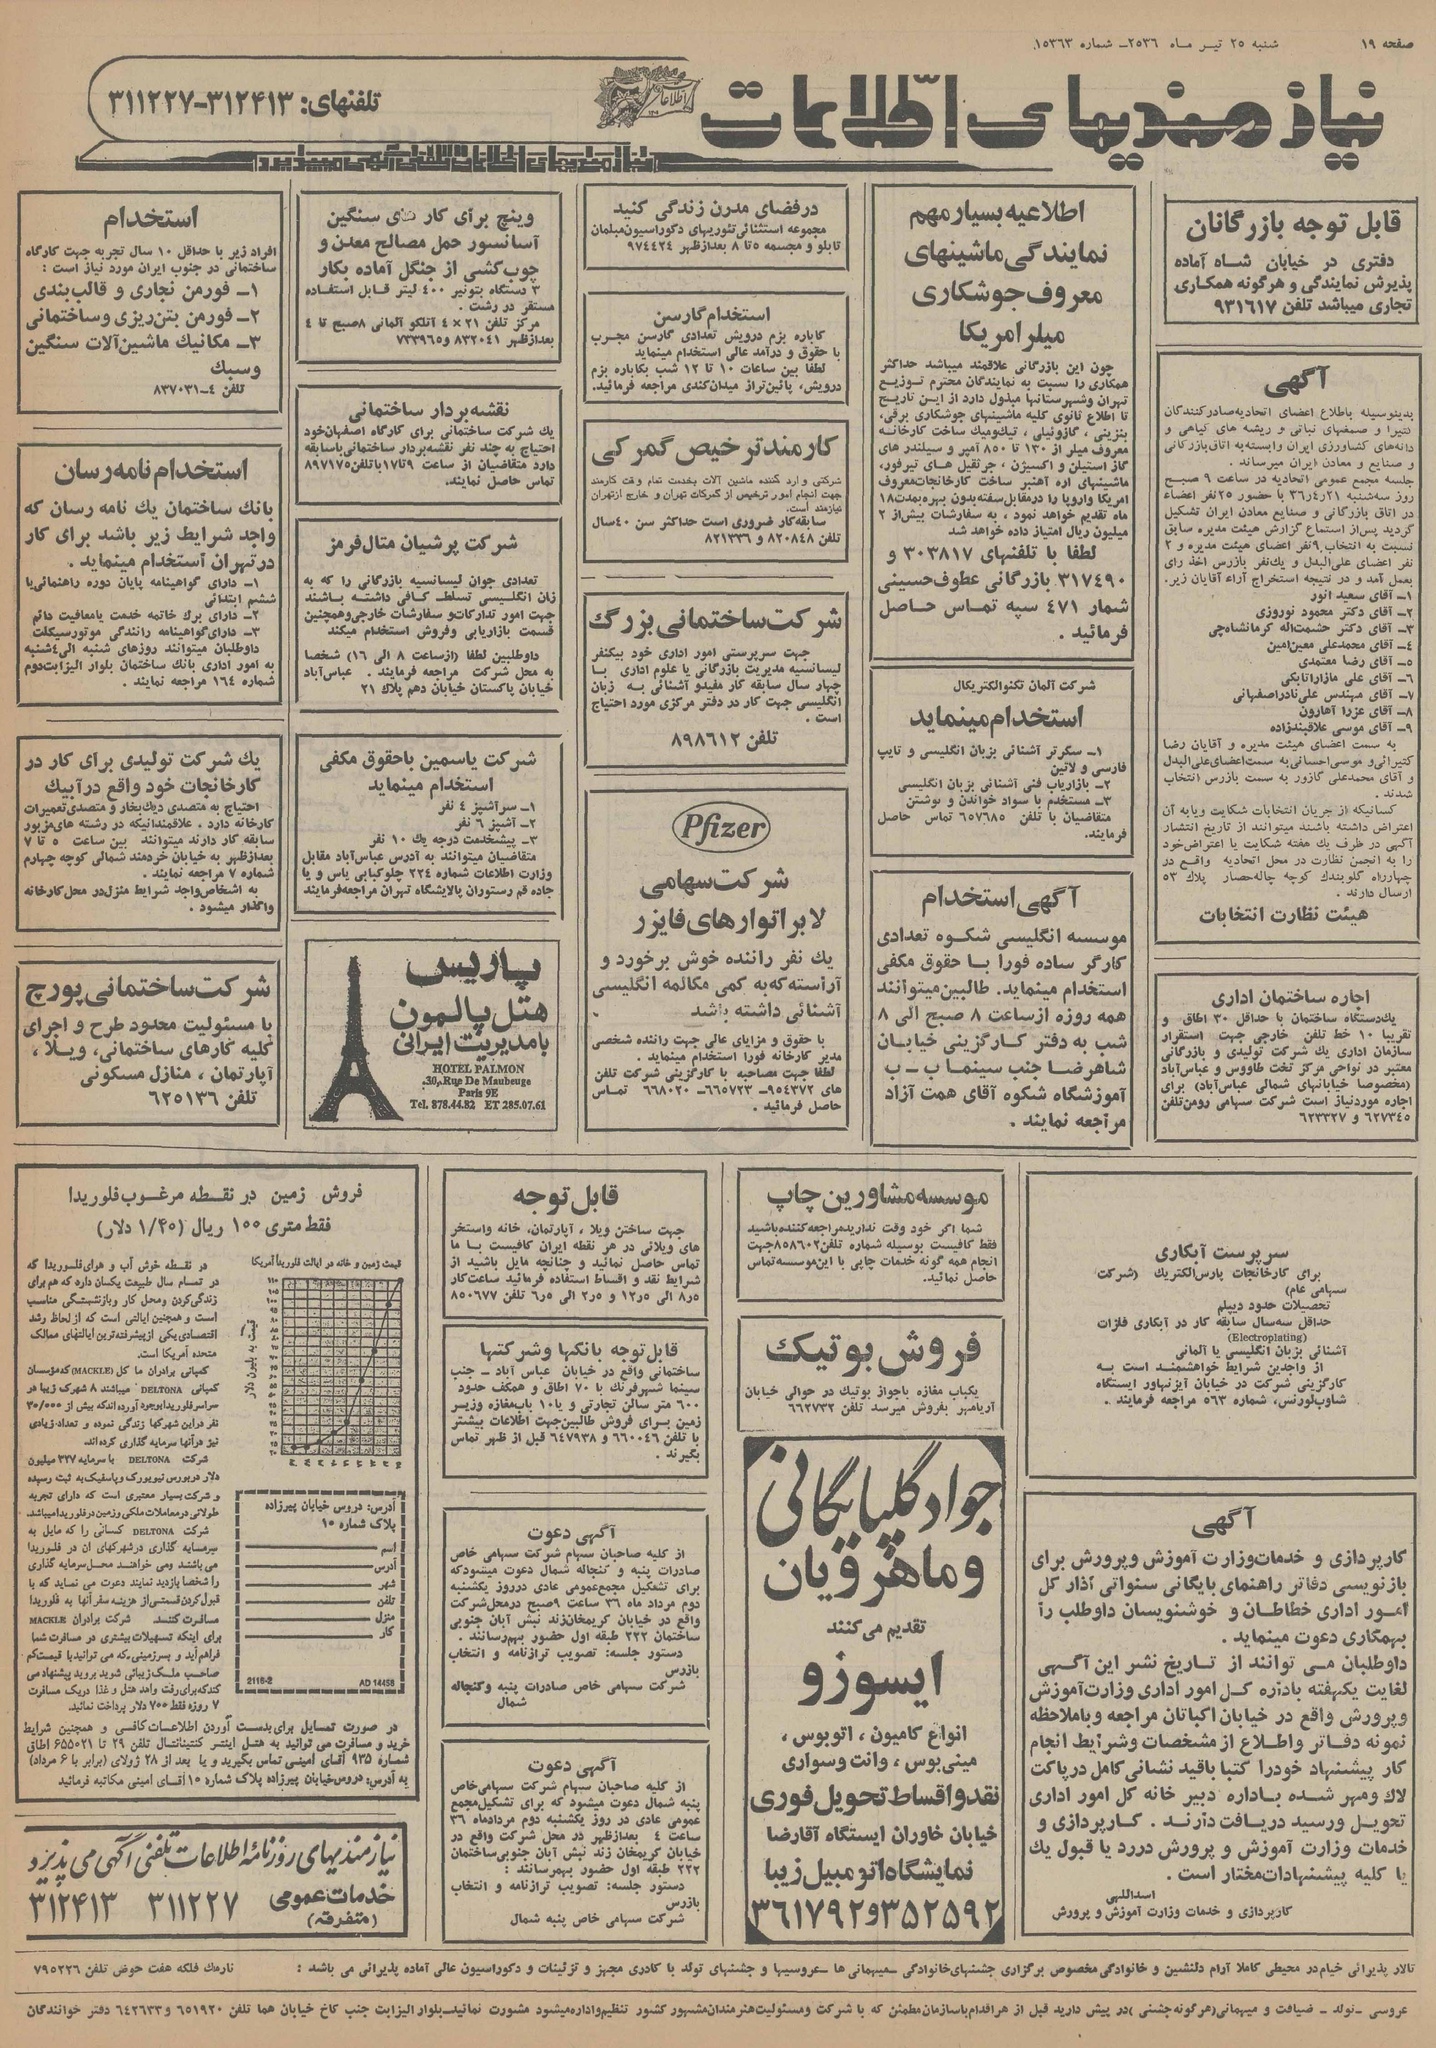 صفحه ۱۹
شنبه ۲۵ تیر ماه ۲۵۳۶ـ شماره ۱۵۳۶۳
نیازمندیهای اطلاعات
تلفنهای: ۳۱۲۴۱۳-۳۱۱۲۲۷
نیازمندیهای اطلاعات تلفنی آگهی میپذیرد
قابل توجه بازرگانان
دفتری در خیابان شاه آماده
پذیرش نمایندگی و هرگونه همکاری
تجاری میباشد تلفن ۹۳۱۶۱۷
آگهی
بدینوسیله باطلاع اعضای اتحادیه صادرکنندگان
کتیرا و صمغهای نباتی و ریشه های گیاهی و
دانه‌های کشاورزی ایران وابسته به اتاق بازرگانی
و صنایع و معادن ایران میرساند .
جلسه مجمع عمومی اتحادیه در ساعت ۹ صبح
روز سه‌شنبه ۳۶/۴/۲۱ با حضور ۲۵ نفر اعضاء
در اتاق بازرگانی و صنایع معادن ایران تشکیل
گردید پس از استماع گزارش هیئت مدیره سابق
نسبت به انتخاب ۹ نفر اعضای هیئت مدیره و ۲
نفر اعضای علی‌البدل و یک‌نفر بازرس اخذ رای
بعمل آمد و در نتیجه استخراج آراء آقایان زیر.
۱ـ آقای سعید انور
۲ـ آقای دکتر محمود نوروزی
۳ـ آقای دکتر حشمت‌اله کرمانشاه‌چی
۴ـ آقای محمدعلی معین‌امین
۵ـ آقای رضا معتمدی
۶ـ آقای علی مازاراتابکی
۷ـ آقای مهندس علی‌نادراصفهانی
۸ـ آقای عزرا آهارون
۹ـ آقای موسی علاقبندزاده
به سمت اعضای هیئت مدیره و آقایان رضا
کتیرائی و موسی احسانی به سمت اعضای علی‌البدل
و آقای محمدعلی گازور به سمت بازرس انتخاب
شدند .
کسانیکه از جریان انتخابات شکایت ویا به آن
اعتراض داشته باشند میتوانند از تاریخ انتشار
آگهی در ظرف یک هفته شکایت یا اعتراض خود
را به انجمن نظارت در محل اتحادیه واقع در
چهارراه گلوبندک کوچه چاله‌حصار پلاک ۵۳
ارسال دارند .
هیئت نظارت انتخابات
اجاره ساختمان اداری
یکدستگاه ساختمان با حداقل ۳۰ اطاق و
تقریبا ۱۰ خط تلفن خارجی جهت استقرار
سازمان اداری یک شرکت تولیدی و بازرگانی
معتبر در نواحی مرکز تخت طاووس و عباس‌آباد
(مخصوصا خیابانهای شمالی عباس‌آباد) برای
اجاره موردنیاز است شرکت سهامی رومن تلفن
۶۲۷۳۴۵ و ۶۲۳۳۲۷
اطلاعیه بسیار مهم
نمایندگی ماشینهای
معروف جوشکاری
میلر امریکا
چون این بازرگانی علاقمند میباشد حداکثر
همکاری را نسبت به نمایندگان محترم توزیع
تهران وشهرستانها مبذول دارد از این تاریخ
تا اطلاع ثانوی کلیه ماشینهای جوشکاری برقی،
بنزینی ، گازوئیلی ، تیک‌ومیک ساخت کارخانه
معروف میلر از ۱۳۰ تا ۸۵۰ آمپر و سیلندر های
گاز استیلن و اکسیژن ، جرثقیل های تیرفور،
ماشینهای اره آهنبر ساخت کارخانجات معروف
امریکا واروپا را درمقابل سفته بدون بهره بمدت ۱۸
ماه تقدیم خواهد نمود ، به سفارشات بیش از ۲
میلیون ریال امتیاز داده خواهد شد
لطفا با تلفنهای ۳۰۳۸۱۷ و
۳۱۷۴۹۰ بازرگانی عطوف‌حسینی
شمار ۴۷۱ سپه تماس حاصل
فرمائید .
شرکت آلمان تکنوالکتریکال
استخدام مینماید
۱ـ سکرتر آشنائی بزبان انگلیسی و تایپ
فارسی و لاتین
۲ـ بازاریاب فنی آشنائی بزبان انگلیسی
۳ـ مستخدم با سواد خواندن و نوشتن
متقاضیان با تلفن ۶۵۷۶۸۵ تماس حاصل
فرمایند.
آگهی استخدام
موسسه انگلیسی شکوه تعدادی
کارگر ساده فورا با حقوق مکفی
استخدام مینماید. طالبین میتوانند
همه روزه از ساعت ۸ صبح الی ۸
شب به دفتر کارگزینی خیابان
شاهرضا جنب سینما ب ـ ب
آموزشگاه شکوه آقای همت آزاد
مراجعه نمایند .
درفضای مدرن زندگی کنید
مجموعه استثنائی تئوریهای دکوراسیون مبلمان
تابلو و مجسمه ۵ تا ۸ بعدازظهر ۹۷۴۴۲۴
استخدام گارسن
کاباره بزم درویش تعدادی گارسن مجرب
با حقوق و درآمد عالی استخدام مینماید
لطفا بین ساعات ۱۰ تا ۱۲ شب بکاباره بزم
درویش، پائین‌تراز میدان کندی مراجعه فرمائید.
کارمند ترخیص گمرکی
شرکتی وارد کننده ماشین آلات بخدمت تمام وقت کارمند
جهت انجام امور ترخیص از گمرکات تهران و خارج ازتهران
نیازمند است.
سابقه کار ضروری است حداکثر سن ۴۰ سال
تلفن ۸۲۰۸۴۸ و ۸۲۱۳۳۶
شرکت ساختمانی بزرگ
جهت سرپرستی امور اداری خود بیکنفر
لیسانسیه مدیریت بازرگانی یا علوم اداری با
چهار سال سابقه کار مفیدو آشنائی به زبان
انگلیسی جهت کار در دفتر مرکزی مورد احتیاج
است .
تلفن ۸۹۸۶۱۲
Pfizer
شرکت سهامی
لابراتوارهای فایزر
یک نفر راننده خوش برخورد و
آراسته‌که به کمی مکالمه انگلیسی
آشنائی داشته باشد .
با حقوق و مزایای عالی جهت راننده شخصی
مدیر کارخانه فورا استخدام مینماید .
لطفا جهت مصاحبه با کارگزینی شرکت تلفن
های ۹۵۴۳۷۲ـ ۶۶۵۷۲۳ـ ۶۶۸۰۲۰ تماس
حاصل فرمائید .
وینچ برای کار های سنگین
آسانسور حمل مصالح معدن و
چوب‌کشی از جنگل آماده بکار
۳ دستگاه بتونیر ۴۰۰ لیتر قابل استفاده
مستقر در رشت .
مرکز تلفن ۲۱ × ۴ آنلکو آلمانی ۸صبح تا ۴
بعدازظهر ۸۳۲۰۴۱ و ۷۳۳۹۶۵
نقشه‌بردار ساختمانی
یک شرکت ساختمانی برای کارگاه اصفهان‌خود
احتیاج به چند نفر نقشه‌بردار ساختمانی باسابقه
دارد متقاضیان از ساعت ۹تا۱۷ با تلفن ۸۹۷۱۷۵
تماس حاصل نمایند.
شرکت پرشیان متال‌فرمز
تعدادی جوان لیسانسیه بازرگانی را که به
زبان انگلیسی تسلط کافی داشته باشند
جهت امور تدارکات‌و سفارشات خارجی‌وهمچنین
قسمت بازاریابی وفروش استخدام میکند
داوطلبین لطفا (ازساعت ۸ الی ۱۶) شخصا
به محل شرکت مراجعه فرمایند . عباس‌آباد
خیابان پاکستان خیابان دهم پلاک ۲۱
شرکت یاسمین باحقوق مکفی
استخدام مینماید
۱ـ سرآشپز ۴ نفر
۲ـ آشپز ۶ نفر
۳ـ پیشخدمت درجه یک ۱۰ نفر
متقاضیان میتوانند به آدرس عباس‌آباد مقابل
وزارت اطلاعات شماره ۲۲۴ چلوکبابی یاس و یا
جاده قم رستوران پالایشگاه تهران مراجعه‌فرمایند
پاریس
هتل پالمون
با مدیریت ایرانی
HOTEL PALMON
30,Rue De Maubeuge
Paris 9E
Tel. 878.44.82 ET 285.07.61
استخدام
افراد زیر با حداقل ۱۰ سال تجربه جهت کارگاه
ساختمانی در جنوب ایران مورد نیاز است :
۱ـ فورمن نجاری و قالب‌بندی
۲ـ فورمن بتن‌ریزی وساختمانی
۳ـ مکانیک ماشین‌آلات سنگین
وسبک
تلفن ۴ـ۸۳۷۰۳۱
استخدام نامه‌رسان
بانک ساختمان یک نامه رسان که
واجد شرایط زیر باشد برای کار
درتهران استخدام مینماید .
۱ـ دارای گواهینامه پایان دوره راهنمائی‌یا
ششم ابتدائی
۲ـ دارای برک خاتمه خدمت یامعافیت دائم
۳ـ دارای گواهینامه رانندگی موتورسیکلت
داوطلبان میتوانند روزهای شنبه الی۴شنبه
به امور اداری بانک ساختمان بلوار الیزابت‌دوم
شماره ۱۶۴ مراجعه نمایند .
یک شرکت تولیدی برای کار در
کارخانجات خود واقع درآبیک
احتیاج به متصدی دیک‌بخار و متصدی‌تعمیرات
کارخانه دارد . علاقمندانیکه در رشته های‌مزبور
سابقه کار دارند میتوانند بین ساعت ۵ تا ۷
بعدازظهر به خیابان خردمند شمالی کوچه چهارم
شماره ۷ مراجعه نمایند .
به اشخاص‌واجد شرایط منزل‌در محل‌کارخانه
واگذار میشود .
شرکت ساختمانی پورچ
با مسئولیت محدود طرح و اجرای
کلیه کارهای ساختمانی، ویلا ،
آپارتمان ، منازل مسکونی
تلفن ۶۲۵۱۳۶
سرپرست آبکاری
برای کارخانجات پارس‌الکتریک (شرکت
سهامی عام)
تحصیلات حدود دیپلم
حداقل سه‌سال سابقه کار در آبکاری فلزات
(Electroplating)
آشنائی بزبان انگلیسی یا آلمانی
از واجدین شرایط خواهشمند است به
کارگزینی شرکت در خیابان آیزنهاور ایستگاه
شاوب‌لورنس، شماره ۵۶۳ مراجعه فرمایند .
آگهی
کارپردازی و خدمات‌وزارت آموزش وپرورش برای
بازنویسی دفاتر راهنمای بایگانی سنواتی آذار کل
امور اداری خطاطان و خوشنویسان داوطلب را
بهمکاری دعوت مینماید .
داوطلبان می توانند از تاریخ نشر این آگهی
لغایت یکهفته باداره کل امور اداری وزارت‌آموزش
وپرورش واقع در خیابان اکباتان مراجعه وباملاحظه
نمونه دفاتر واطلاع از مشخصات وشرایط انجام
کار پیشنهاد خودرا کتبا باقید نشانی‌کامل درپاکت
لاک ومهر شده باداره دبیر خانه کل امور اداری
تحویل ورسید دریافت دارند . کارپردازی و
خدمات وزارت آموزش و پرورش دررد یا قبول یک
یا کلیه پیشنهادات‌مختار است .
اسداللهی
کارپردازی و خدمات وزارت آموزش و پرورش
موسسه مشاورین چاپ
شما اگر خود وقت ندارید مراجعه‌کننده‌باشید
فقط کافیست بوسیله شماره تلفن ۸۵۸۶۰۲جهت
انجام همه گونه خدمات چاپی با این موسسه تماس
حاصل نمائید.
فروش بوتیک
یکباب مغازه باجواز بوتیک در حوالی خیابان
آریامهر بفروش میرسد تلفن ۶۶۲۷۳۲
جواد گلپایگانی
وماهرویان
تقدیم می‌کنند
ایسوزو
انواع کامیون ، اتوبوس ،
مینی‌بوس ، وانت وسواری
نقدواقساط تحویل فوری
خیابان خاوران ایستگاه آقارضا
نمایشگاه اتومبیل زیبا
۳۵۲۵۹۲و۳۶۱۷۹۲
قابل توجه
جهت ساختن ویلا ، آپارتمان، خانه واستخر
های ویلائی در هر نقطه ایران کافیست با ما
تماس حاصل نمائید و چنانچه مایل باشید از
شرایط نقد و اقساط استفاده فرمائید ساعت کار
۸٫۵ الی ۱۲٫۵ و ۲٫۵ الی ۶٫۵ تلفن ۸۵۰۶۷۷
قابل توجه بانکها وشرکتها
ساختمانی واقع در خیابان عباس آباد ـ جنب
سینما شهرفرنگ با ۷۰ اطاق و همکف حدود
۶۰۰ متر سالن تجارتی و یا۱۰ باب‌مغازه وزیر
زمین برای فروش طالبین‌جهت اطلاعات بیشتر
با تلفن ۶۶۰۰۴۶ و ۶۴۷۹۳۸ قبل از ظهر تماس
بگیرند .
آگهی دعوت
از کلیه صاحبان سهام شرکت سهامی خاص
صادرات پنبه و کنجاله شمال دعوت میشودکه
برای تشکیل مجمع‌عمومی عادی درروز یکشنبه
دوم مرداد ماه ۳۶ ساعت ۹صبح درمحل‌شرکت
واقع در خیابان کریمخان‌زند نبش آبان جنوبی
ساختمان ۲۲۲ طبقه اول حضور بهم‌رسانند .
دستور جلسه: تصویب ترازنامه و انتخاب
بازرس
شرکت سهامی خاص صادرات پنبه وکنجاله
شمال
آگهی دعوت
از کلیه صاحبان سهام شرکت سهامی خاص
پنبه شمال دعوت میشود که برای تشکیل‌مجمع
عمومی عادی در روز یکشنبه دوم مردادماه ۳۶
ساعت ۴ بعدازظهر در محل شرکت واقع در
خیابان کریمخان زند نبش آبان جنوبی‌ساختمان
۲۲۲ طبقه اول حضور بهمرسانند :
دستور جلسه: تصویب ترازنامه و انتخاب
بازرس
شرکت سهامی خاص پنبه شمال
فروش زمین در نقطه مرغوب فلوریدا
فقط متری ۱۰۰ ریال (۱/۴۰ دلار)
قیمت زمین و خانه در ایالت فلوریدا آمریکا
قیمت به بلیون دلار
در نقطه خوش آب و هوای فلوریدا که
در تمام سال طبیعت یکسان دارد که هم برای
زندگی‌کردن و محل کار و بازنشستگی مناسب
است و همچنین ایالتی است که از لحاظ رشد
اقتصادی یکی از پیشرفته‌ترین ایالتهای ممالک
متحده آمریکا است.
کمپانی برادران ما کل (MACKLE) که مؤسسان
کمپانی DELTONA میباشند ۸ شهرک زیبا در
سراسر فلوریدا بوجود آورده‌اند که بیش از ۳۰/۰۰۰
نفر در این شهرکها زندگی نموده و تعداد زیادی
نیز در آنها سرمایه گذاری کرده‌اند.
شرکت DELTONA با سرمایه ۳۲۷ میلیون
دلار در بورس نیویورک و پاسفیک به ثبت رسیده
و شرکت بسیار معتبری است که دارای تجربه
طولانی در معاملات ملکی و زمین در فلوریدا میباشد.
شرکت DELTONA کسانی را که مایل به
سرمایه گذاری در شهرکهای آن در فلوریدا
می‌باشند ومی خواهند محل سرمایه گذاری
را شخصا بازدید نمایند دعوت می نماید که با
قبول کردن قسمتی از هزینه سفر آنها به فلوریدا
مسافرت کنند. شرکت برادران MACKLE
برای اینکه تسهیلات بیشتری در مسافرت شما
فراهم آید و بسرزمینی که می توانید با قیمت کم
صاحب ملک زیبائی شوید بروید پیشنهاد می
کند که برای رفت واهد هتل و غذا در یک مسافرت
۷ روزه فقط ۷۰۰ دلار پرداخت نمائید.
در صورت تمایل برای بدست آوردن اطلاعات کافی و همچنین شرایط
خرید و مسافرت می توانید به هتل اینتر کنتیننتال تلفن ۲۹ تا ۶۵۵۰۲۱ اطاق
شماره ۹۲۵ آقای امینی تماس بگیرید و یا بعد از ۲۸ ژولای (برابر با ۶ مرداد)
به آدرس: دروس خیابان پیرزاده پلاک شماره ۱۰ آقای امینی مکاتبه فرمائید
آدرس: دروس خیابان پیرزاده
پلاک شماره ۱۰
اسم
آدرس
شهر
تلفن
منزل
کار
2116-2 AD 14458
نیازمندیهای روزنامه اطلاعات تلفنی آگهی می پذیرد
خدمات عمومی
(متفرقه)
۳۱۱۲۲۷ ۳۱۲۴۱۳
تالار پذیرائی خیام در محیطی کاملا آرام دلنشین و خانوادگی مخصوص برگزاری جشنهای خانوادگی ـ میهمانی ها ـ عروسیها و جشنهای تولد با کادری مجهز و تزئینات و دکوراسیون عالی آماده پذیرائی می باشد : نارمک فلکه هفت حوض تلفن ۷۹۵۲۲۶
عروسی ـ تولد ـ ضیافت و میهمانی (هرگونه جشنی) در پیش دارید قبل از هراقدام باسازمان مطمئن که با شرکت ومسئولیت هنرمندان مشهور کشور تنظیم واداره میشود مشورت نمائید ـ بلوار الیزابت جنب کاخ خیابان هما تلفن ۶۵۱۹۲۰ و ۶۴۲۶۳۳ دفتر خوانندگان